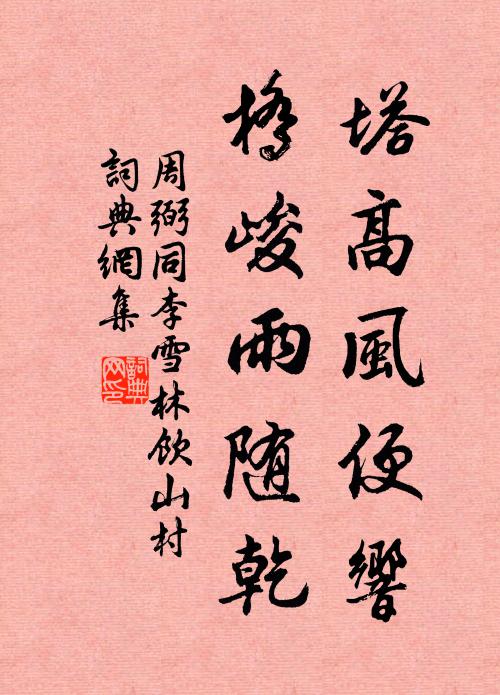 塔高風便響
橋峻雨随乾
周弼同李雪林飲山村
詞典網集
詞典
网印